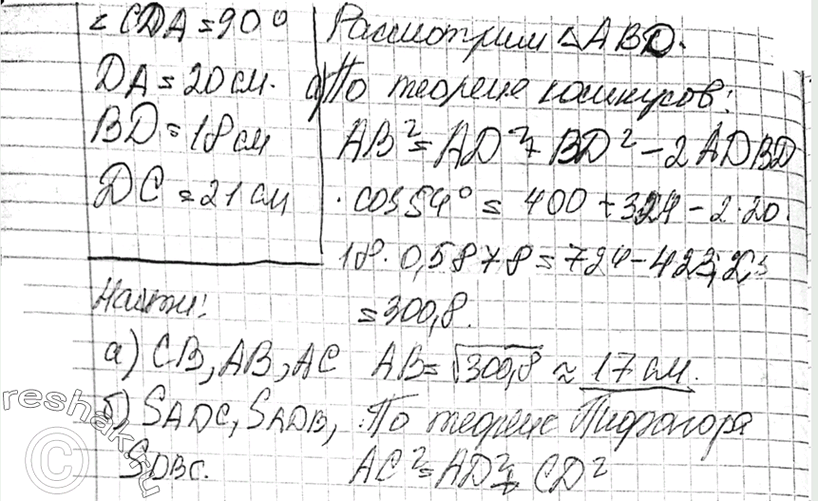 ∠CDA = 90°
DA = 20 см.
BD = 18 см
DC = 21 см
Найти:
а) CB, AB, AC
б) SADC, SADB,
SDBC.
Рассмотрим △ABD.
а) По теореме косинусов:
AB² = AD² + BD² - 2ADBD
· cos54° = 400 + 324 - 2·20·
18·0,5878 = 724 - 423,2 =
= 300,8.
AB = √300,8 ≈ 17 см.
По теореме Пифагора
AC² = AD² + CD²
reshak.ru